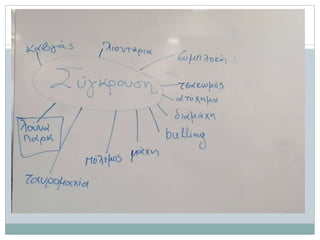 καβγάς
λιοντάρια
συμπλοκή
Σύγκρουση
τσακωμός
ατύχημα
διαμάχη
bulling
λούνα
παρκ
μάχη
πόλεμος
ταυρομαχία